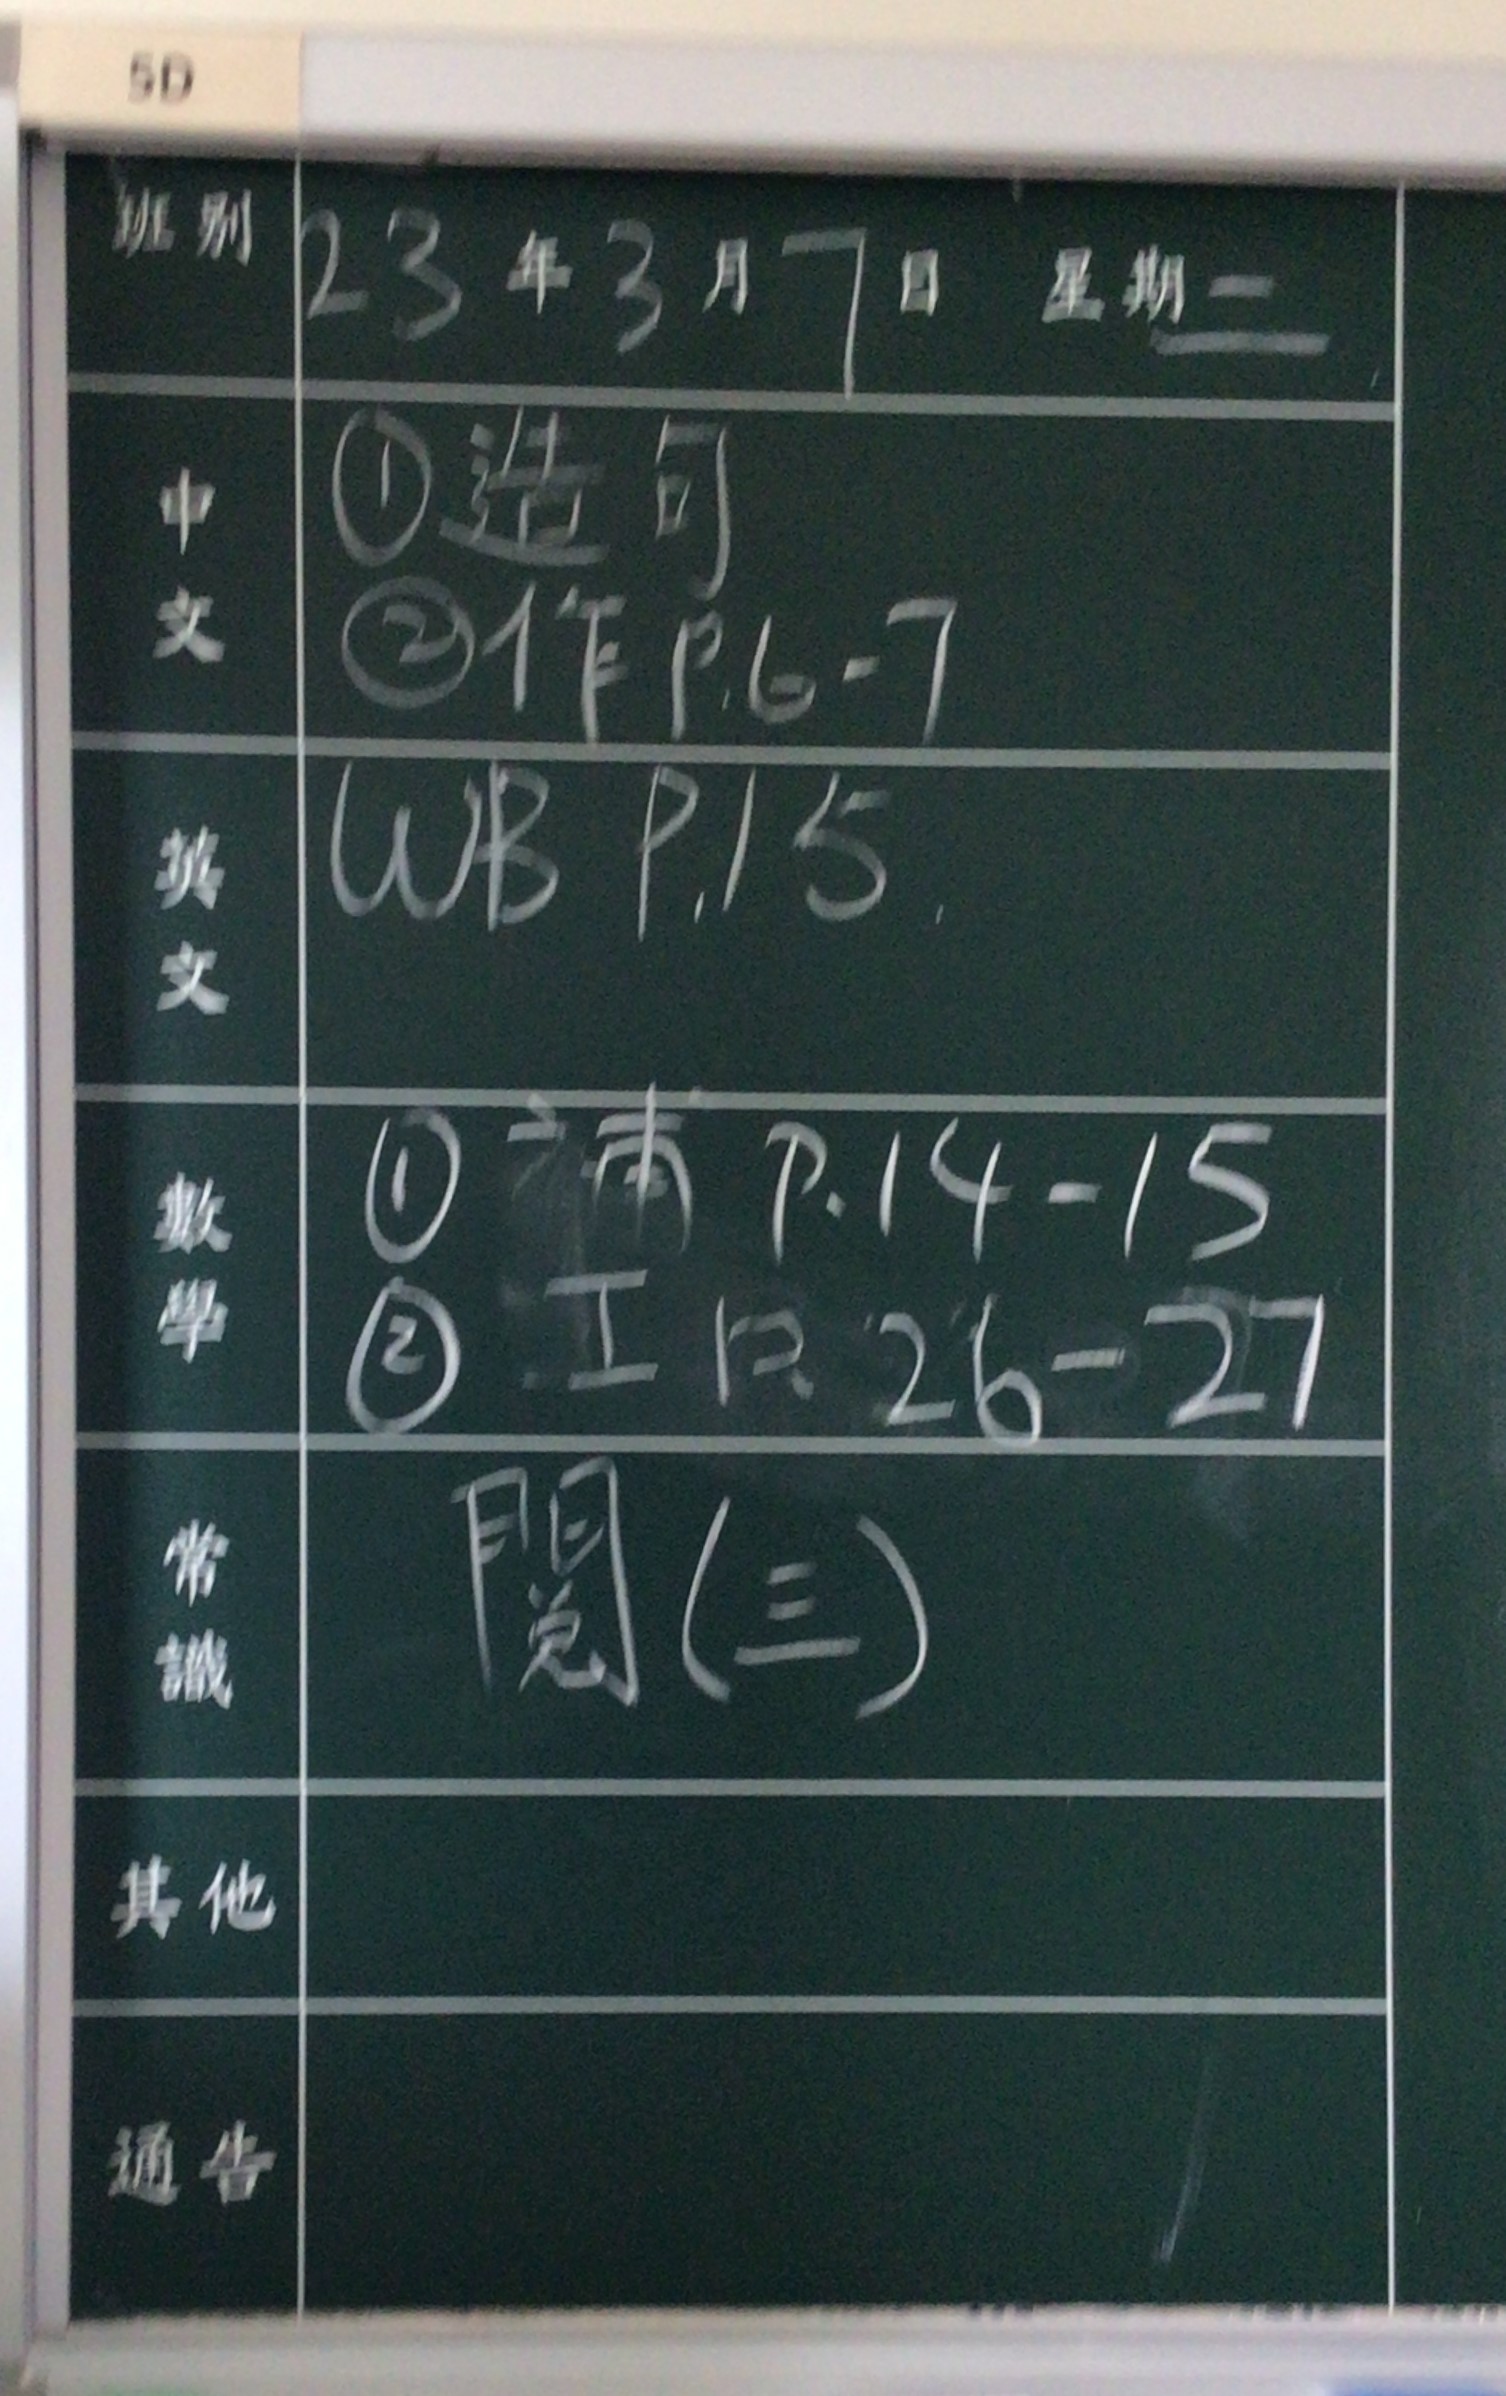 5D
班別 23年3月7日 星期二
中文 ①造句
②作P.6-7
英文 WB P.15.
數學 ① 補 P.14-15
② 工 P. 26-27
常識 閱(三)
其他
通告